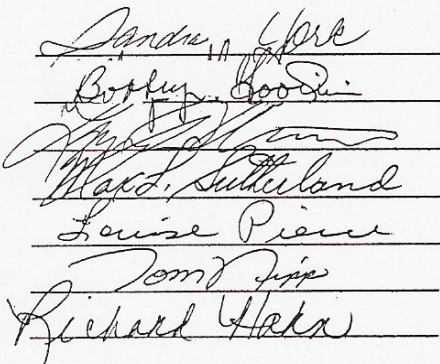 Sandra York
Bobby
Max L. Sutherland
Louise Pierce
Tom Nipp
Richard Hahn